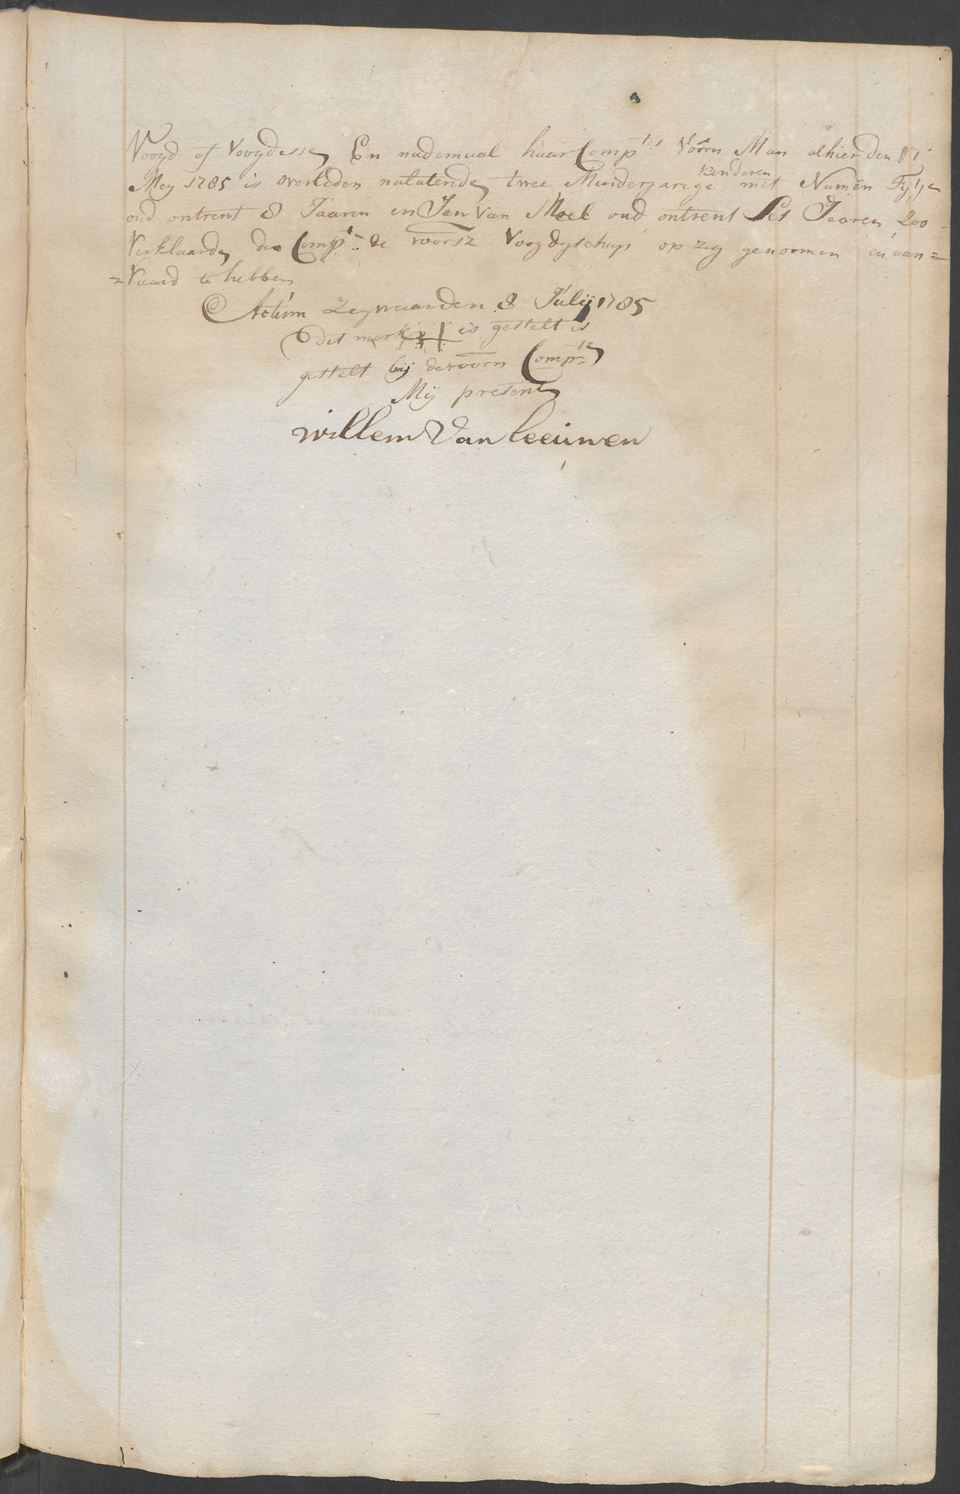 Voogd of Voogdesse, En nademaal haar Comp:tes Voorn Man alhier den
Mey 1785 is overleden nalatende twee Minderjarige kinderen met Namen Fijtje
oud ontrent 8 Jaaren en Jan Van Moel oud ontrent Ses Jaaren, Zoo
Verklaarde de Comp:te de voorsz Voogdyschap op zig genoomen en aan=
=Vaard te hebben
Actum Zegwaarden 8 Julij 1785
dit merk is gestelt is
gestelt bij de voorn Comp:te
Mij present
willem Van Leeuwen